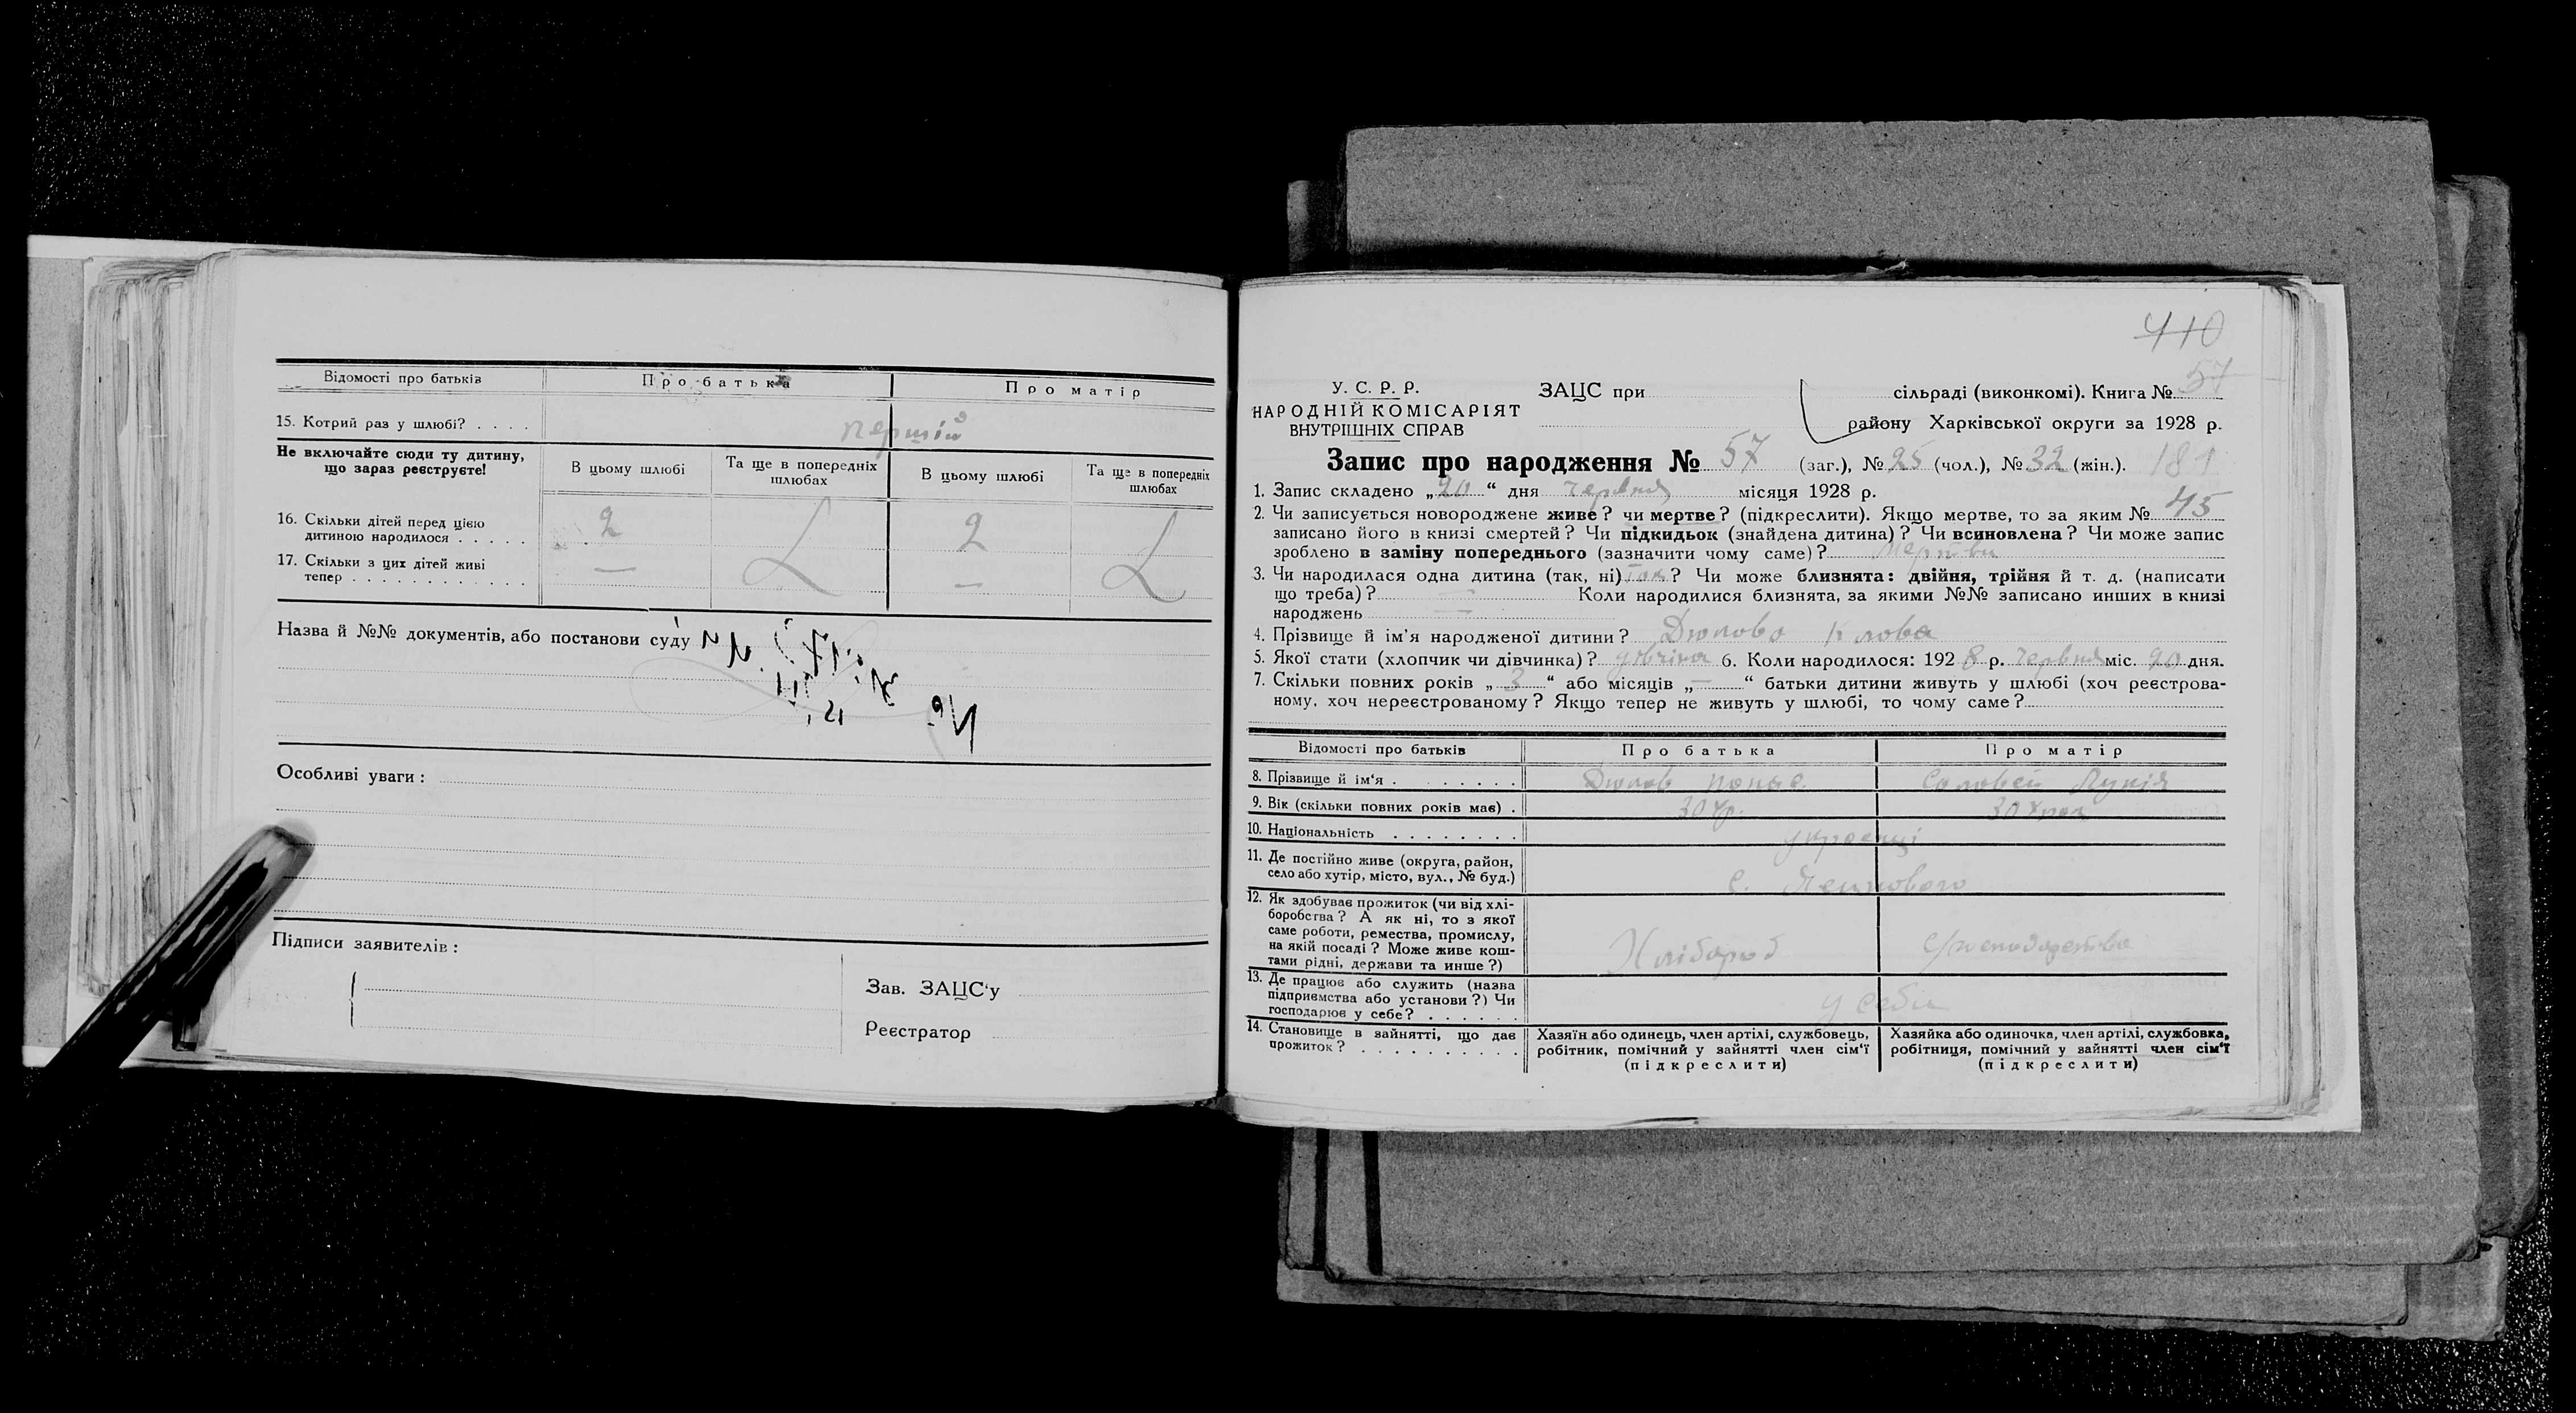 Відомості про батьків
Про батька
Про матір
15. Котрий раз у шлюбі? . . . .
першій
Не включайте сюди ту дитину,
що зараз реєструєте!
В цьому шлюбі
Та ще в попередніх
шлюбах
В цьому шлюбі
Та ще в попередніх
шлюбах
16. Скільки дітей перед цією
дитиною народилося . . . . .
2
2
17. Скільки з цих дітей живі
тепер . . . . . . . . . . . .
—
—
Назва й №№ документів, або постанови суду
Особливі уваги :
Підписи заявителів :
Зав. ЗАЦС'у
Реєстратор
410
57
У. С. Р. Р.
НАРОДНІЙ КОМІСАРІЯТ
ВНУТРІШНІХ СПРАВ
ЗАЦС при
сільраді (виконкомі). Книга №
району Харківської округи за 1928 р.
Запис про народження № 57 (заг.), № 25 (чол.), № 32 (жін.). 181
1. Запис складено „20“ дня червня місяця 1928 р.
2. Чи записується новороджене живе? чи мертве? (підкреслити). Якщо мертве, то за яким № 45
записано його в книзі смертей? Чи підкидьок (знайдена дитина)? Чи всиновлена? Чи може запис
зроблено в заміну попереднього (зазначити чому саме)?
3. Чи народилася одна дитина (так, ні) так? Чи може близнята: двійня, трійня й т. д. (написати
що треба)? — Коли народилися близнята, за якими №№ записано инших в книзі
народжень —
4. Прізвище й ім'я народженої дитини?
5. Якої стати (хлопчик чи дівчинка)? 6. Коли народилося: 1928 р. червня міс. 20 дня.
7. Скільки повних років „3“ або місяців „—“ батьки дитини живуть у шлюбі (хоч реєстрова-
ному, хоч нереєстрованому? Якщо тепер не живуть у шлюбі, то чому саме?
Відомості про батьків
Про батька
Про матір
8. Прізвище й ім'я . . . . . . . .
Соловей
9. Вік (скільки повних років має) .
30
30
10. Національність . . . . . . . .
українці
11. Де постійно живе (округа, район,
село або хутір, місто, вул., № буд.)
с.
12. Як здобуває прожиток (чи від хлі-
боробства? А як ні, то з якої
саме роботи, ремества, промислу,
на якій посаді? Може живе кош-
тами рідні, держави та инше?)
Хлібороб
13. Де працює або служить (назва
підприємства або установи?) Чи
господарює у себе? . . . . . .
у себе
14. Становище в зайнятті, що дає
прожиток? . . . . . . . . . .
Хазяїн або одинець, член артілі, службовець,
робітник, помічний у зайнятті член сім'ї
(підкреслити)
Хазяйка або одиночка, член артілі, службовка,
робітниця, помічний у зайнятті член сім'ї
(підкреслити)